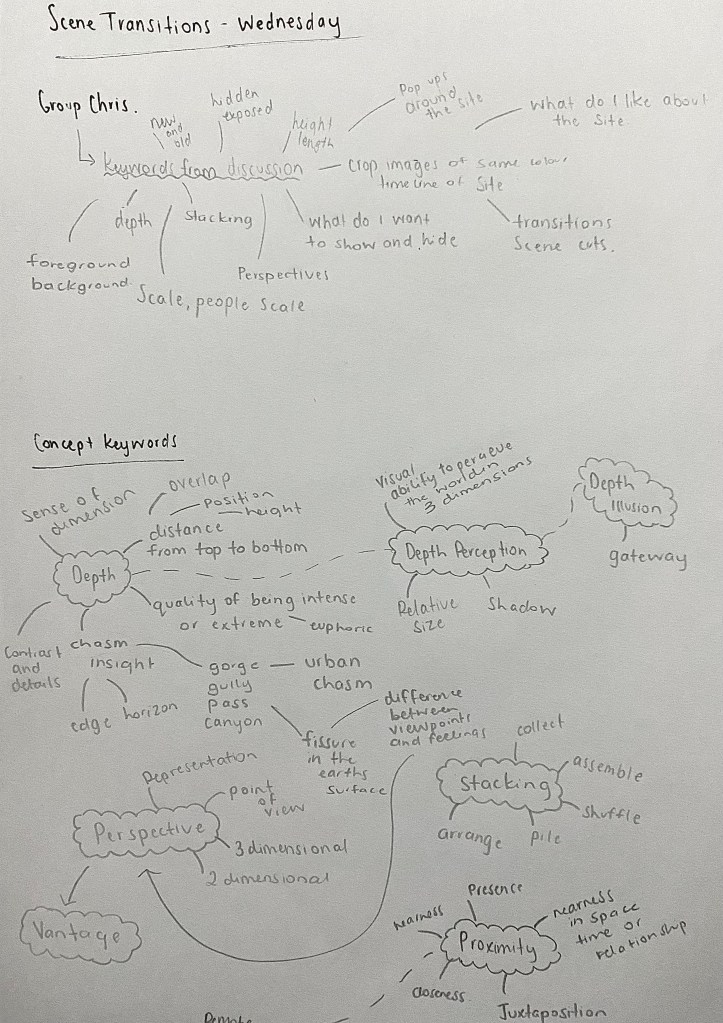 Scene Transitions - Wednesday
Group Chris.
new
and
old
hidden
exposed
height
length
Pop ups
around
the site
what do I like about
the site
keywords from discussion
crop images of same colour
timeline of site
depth
stacking
what do I want
to show and hide
transitions
scene cuts.
foreground
background.
Scale, people scale
Perspectives
Concept keywords
sense of
dimension
overlap
position
height
distance
from top to bottom
Depth
quality of being intense
or extreme
euphoric
Visual
ability to perceive
the world in
3 dimensions
Depth Perception
Relative
size
Shadow
Depth
Illusion
gateway
Contrast
and
details
chasm
insight
edge
horizon
gorge
gully
pass
canyon
urban
chasm
fissure
in the
earths
surface
difference
between
viewpoints
and feelings
Representation
point
of
view
Perspective
3 dimensional
2 dimensional
Vantage
collect
assemble
Stacking
shuffle
arrange
pile
Presence
nearness
nearness
in space
time or
relationship
Proximity
closeness
Juxtaposition